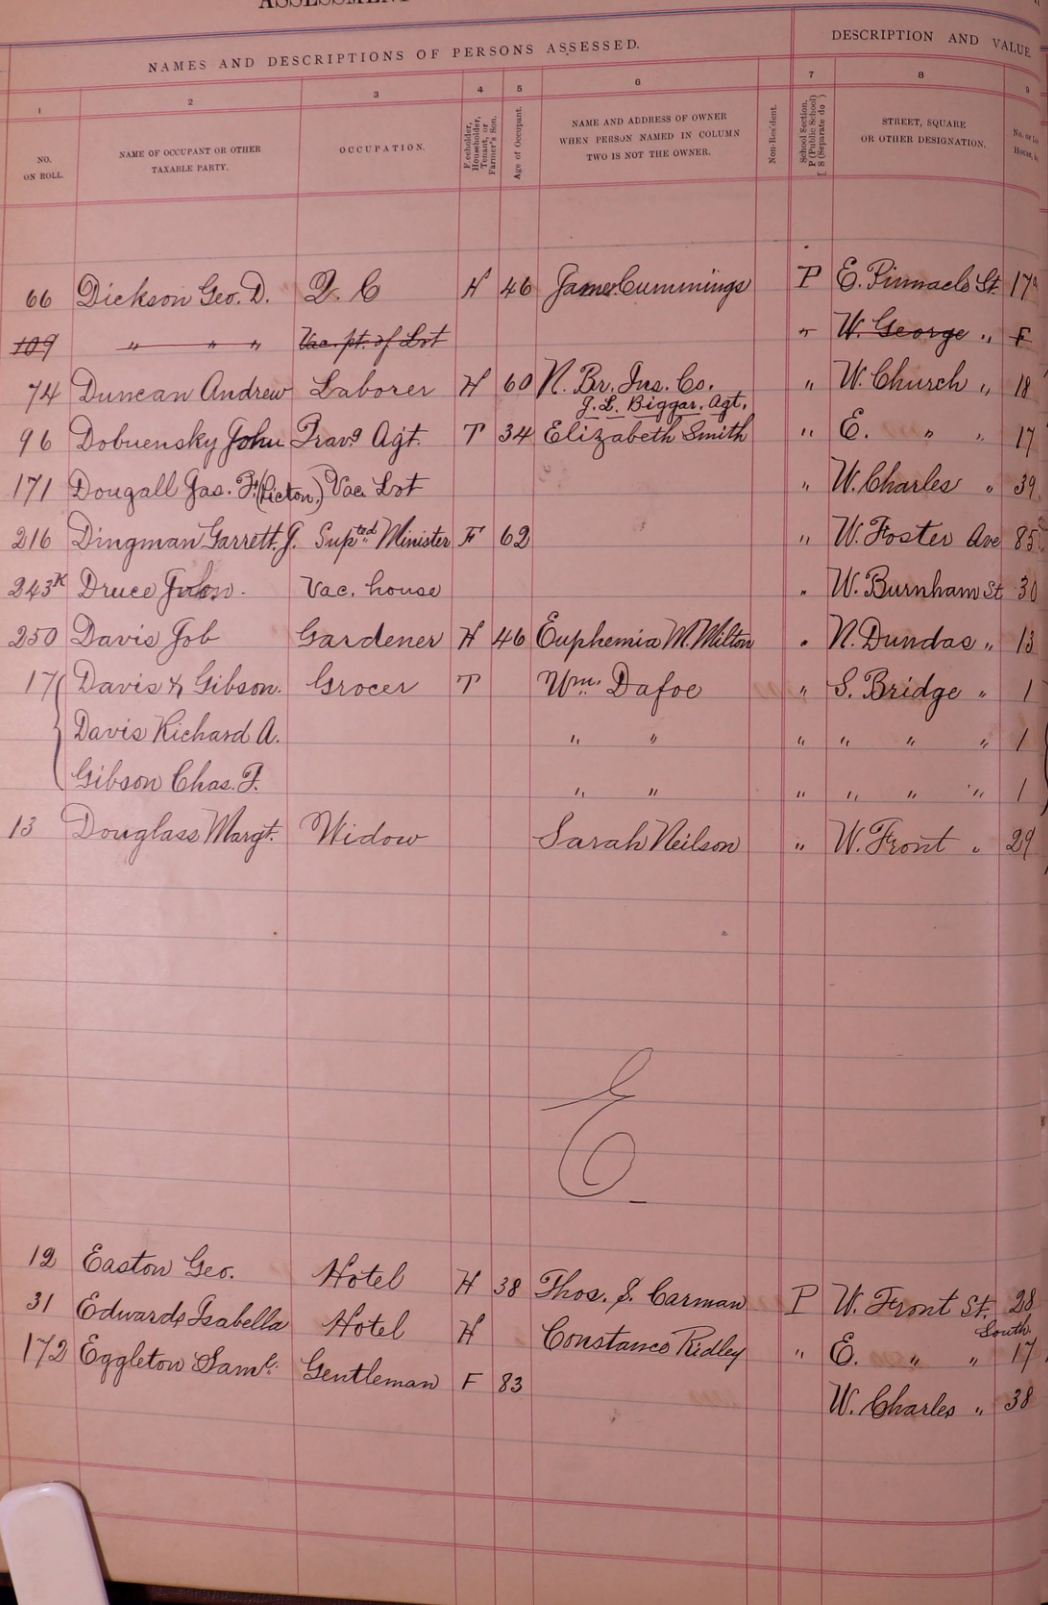 ASSESSMENT
NAMES AND DESCRIPTIONS OF PERSONS ASSESSED.
DESCRIPTION AND VALUE
1 2 3 4 5 6 7 8 9
NO. ON ROLL.
NAME OF OCCUPANT OR OTHER TAXABLE PARTY.
OCCUPATION.
Freeholder, Householder, Tenant, or Farmer's Son.
Age of Occupant.
NAME AND ADDRESS OF OWNER WHEN PERSON NAMED IN COLUMN TWO IS NOT THE OWNER.
Non-Resident.
School Section, P (Public School) S (Separate do )
STREET, SQUARE OR OTHER DESIGNATION.
66 Dickson Geo. D. Q. C H 46 James Cummings P E. Pinnacle St. 17
109 " " " Vac. pt. of Lot " W. George " F
74 Duncan Andrew Laborer H 60 N. Br. Ins. Co. " W. Church " 18
J. L. Biggar. Agt.
96 Dobuensky John Trav.g Agt. T 34 Elizabeth Smith " E. " " 17
171 Dougall Jas. F. (Picton.) Vac. Lot " W. Charles " 39
216 Dingman Garrett J. Supted Minister F 62 " W. Foster Ave 85
243K Druce John. Vac. house " W. Burnham St 30
250 Davis Job Gardener H 46 Euphemia M. Milton " N. Dundas " 13
17 Davis & Gibson. Grocer T Wm. Dafoe " S. Bridge " 1
Davis Richard A. " " " " " " 1
Gibson Chas. F. " " " " " " 1
13 Douglass Margt. Widow Sarah Neilson " W. Front " 29
E
12 Easton Geo. Hotel H 38 Thos. S. Carman P W. Front St. 28
South.
31 Edwards Isabella Hotel H Constance Ridley " E. " " 17
172 Eggleton Saml. Gentleman F 83 W. Charles " 38